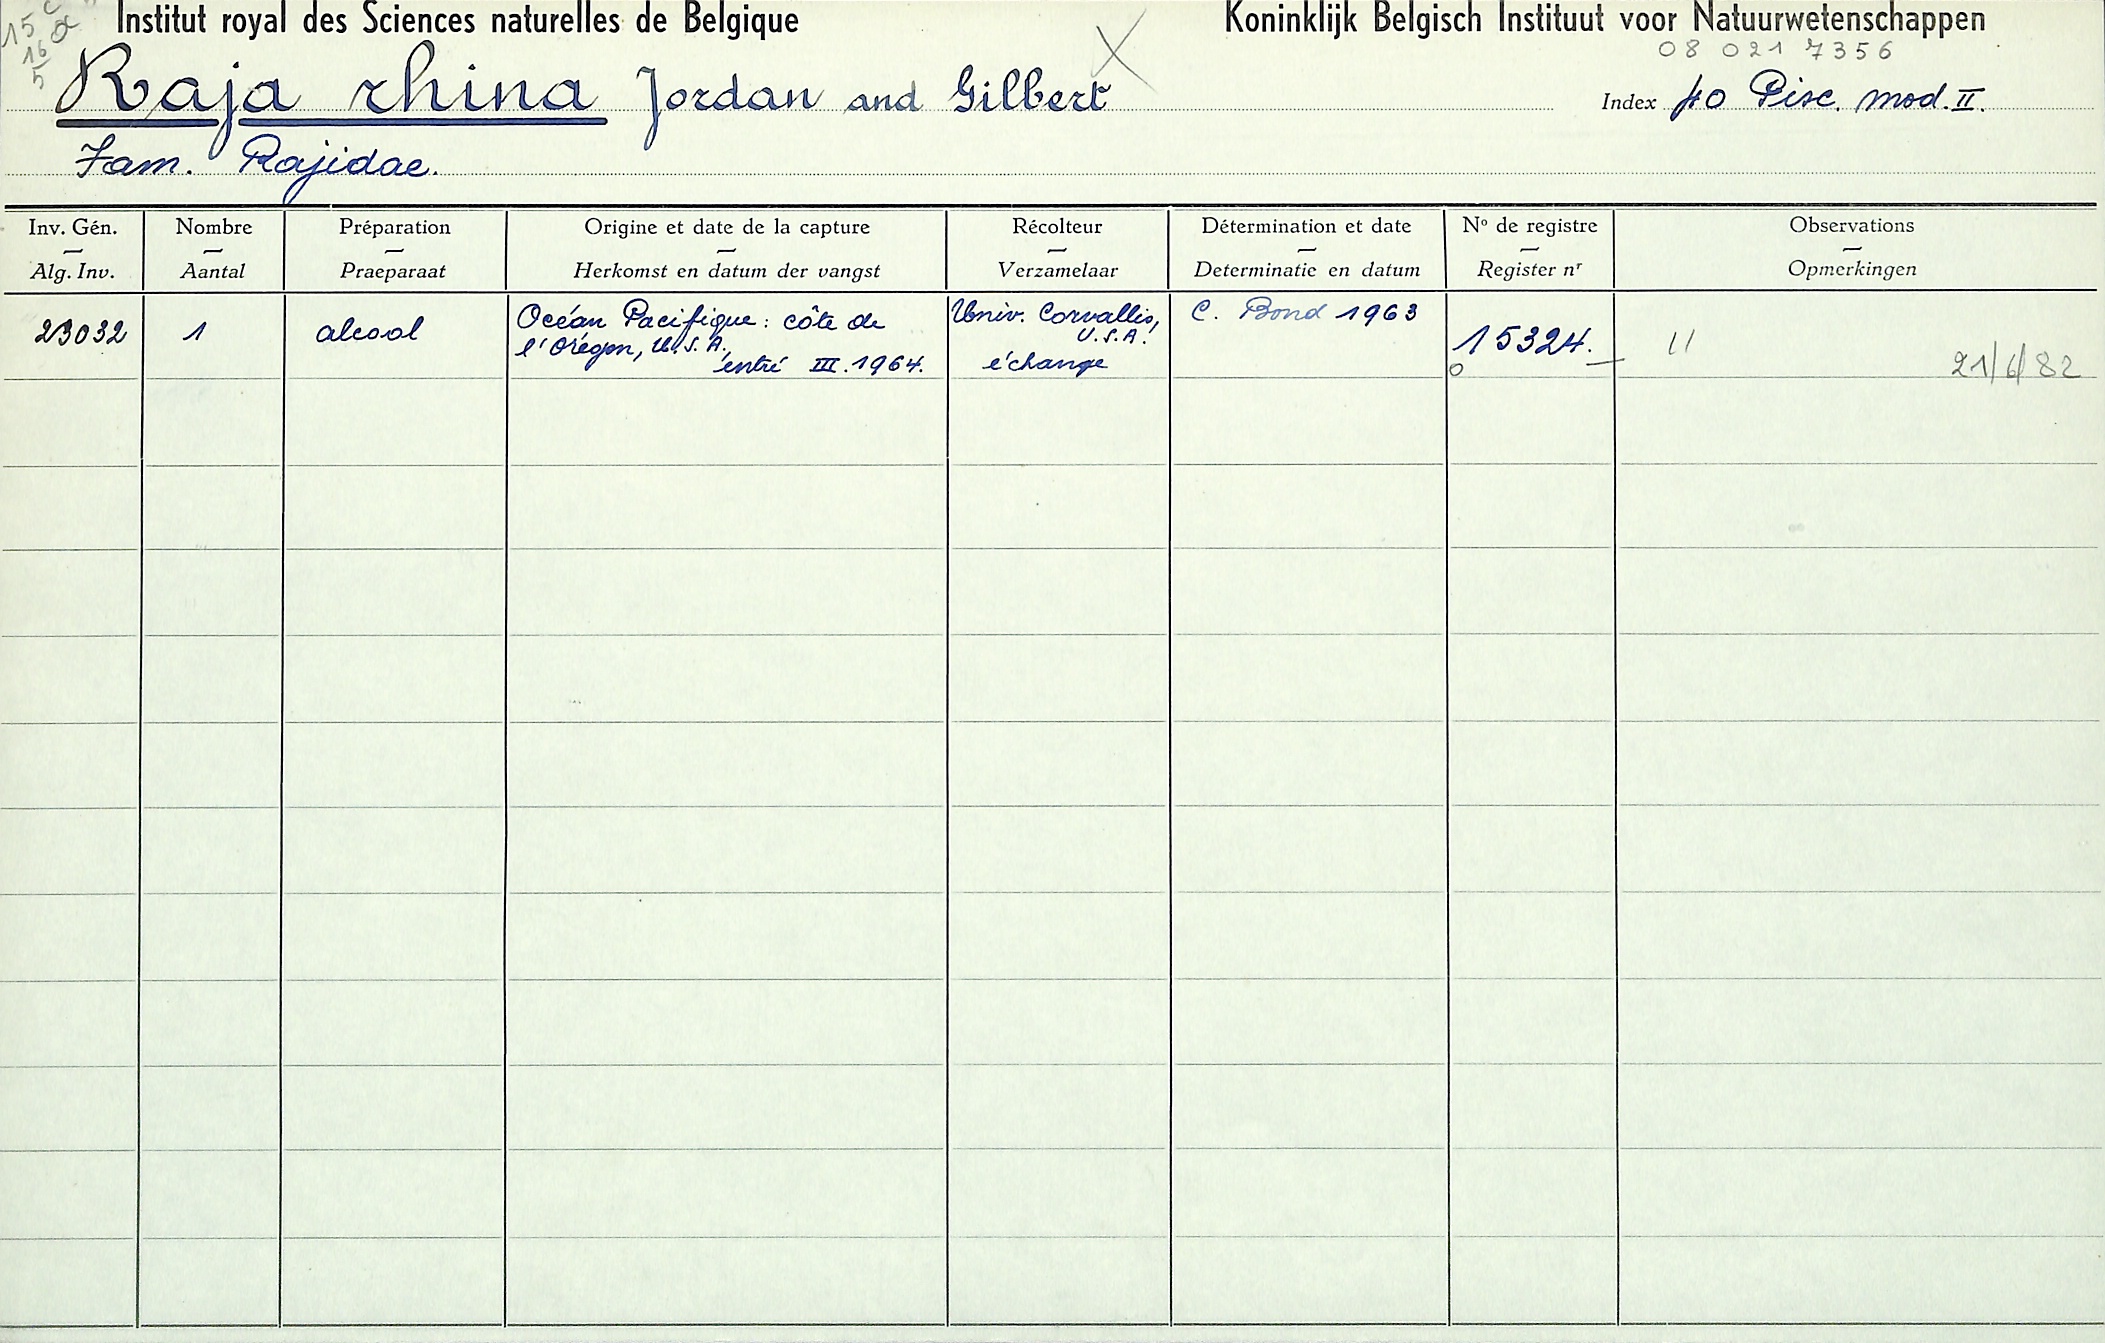 Institut royal des Sciences naturelles de Belgique
Koninklijk Belgisch Instituut voor Natuurwetenschappen
15
16
5
08 021 7356
Raja rhina Jordan and Gilbert
Index 40 Pisc. mod. II.
Fam. Rajidae.
Inv. Gén. Nombre Préparation Origine et date de la capture Récolteur Détermination et date No de registre Observations
Alg. Inv. Aantal Praeparaat Herkomst en datum der vangst Verzamelaar Determinatie en datum Register nr Opmerkingen
23032 1 alcool
Océan Pacifique : côte de
l'Orégon, U.S.A.
entré III.1964.
Univ. Corvallis,
U.S.A.
échange
C. Bond 1963
15324.
21/6/82